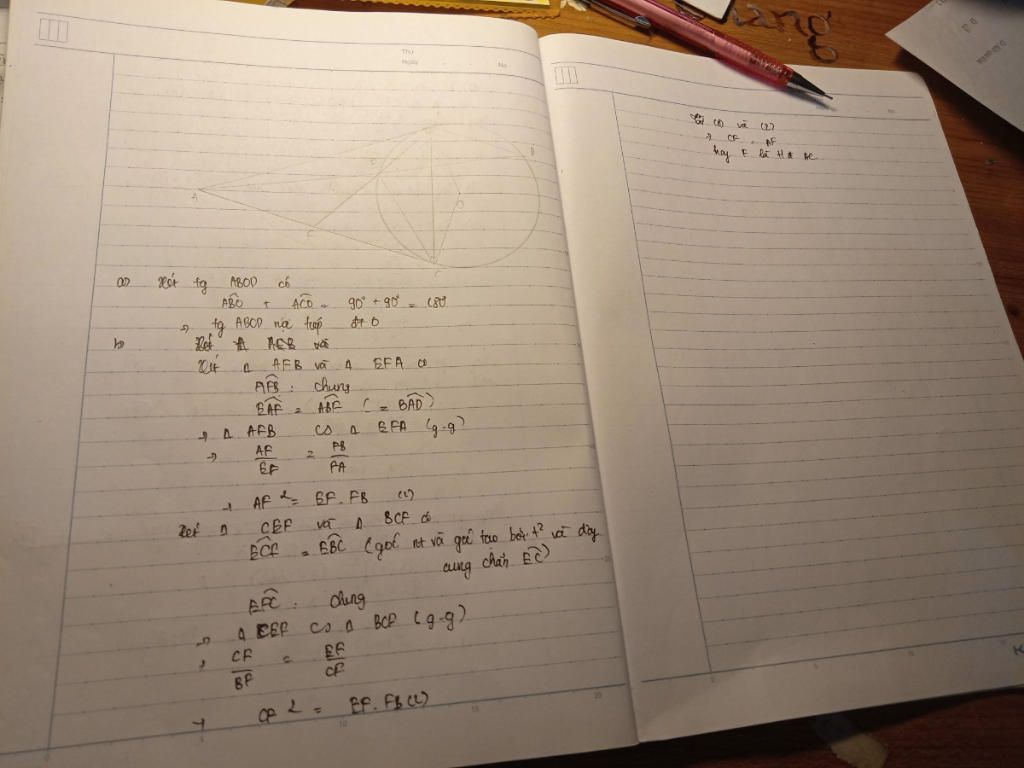 Thứ
Ngày
No
A
B
O
C
a) Xét tg ABOD có
ABO + ACD = 90° + 90° = 180°
→ tg ABOD nội tiếp đt O
b) Xét Δ AEB và
Xét Δ AFB và Δ EFA có
AFB : chung
EAF = ABF ( = BAD )
→ Δ AFB ~ Δ EFA (g-g)
→ AF/EF = FB/FA
→ AF² = EF.FB (1)
Xét Δ CEF và Δ BCF có
ECF = EBC (góc nt và góc tạo bởi t² và dây
cung chắn EC)
EFC : chung
→ Δ CEF ~ Δ BCF (g-g)
→ CF/BF = EF/CF
→ CF² = EF.FB (2)
Từ (1) và (2)
→ CF = AF
hay F là AC